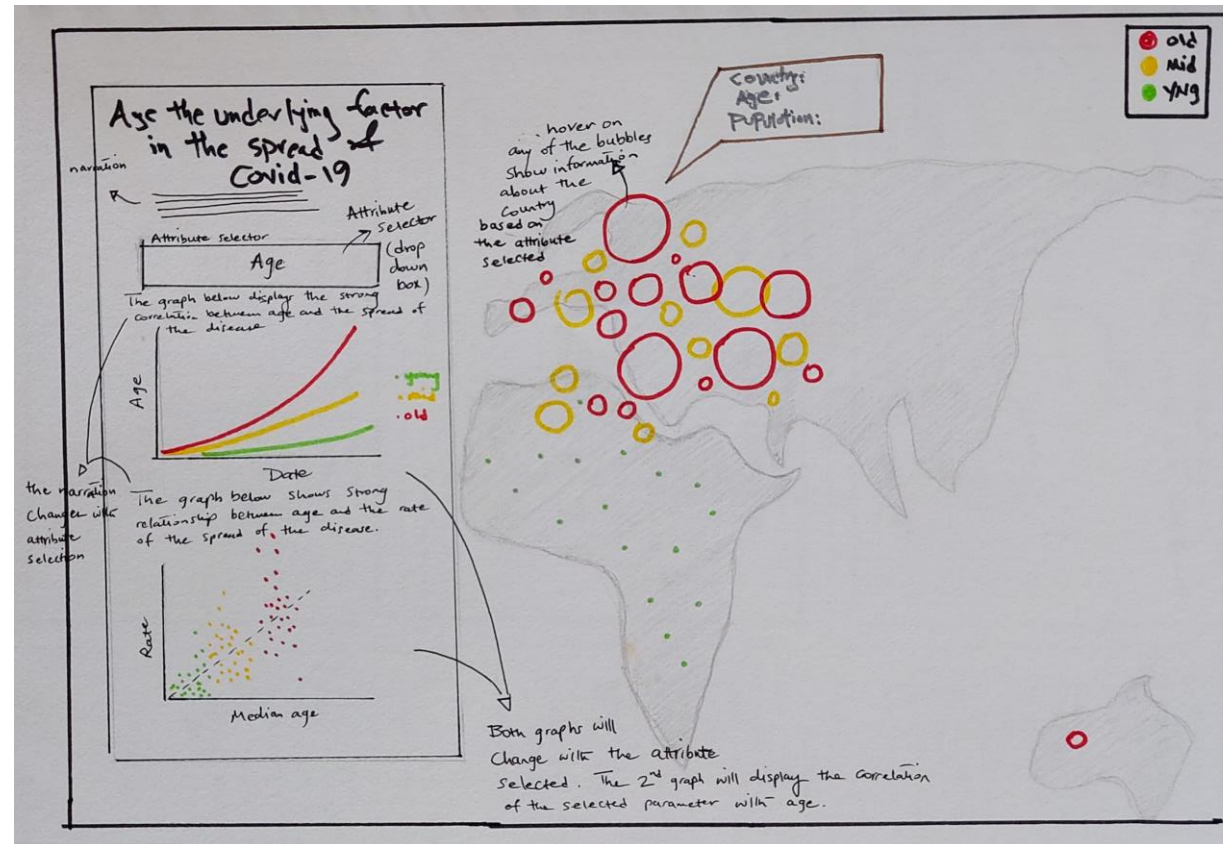 Age the underlying factor
in the spread of
Covid-19
narration
Attribute selector
Age
Attribute
selector
(drop
down
box)
The graph below displays the strong
correlation between age and the spread of
the disease
Age
Date
• young
• old
the narration
Changes with
attribute
selection
The graph below shows strong
relationship between age and the rate
of the spread of the disease.
Rate
Median age
hover on
any of the bubbles
Show information
about the
Country
based on
the attribute
selected
Country:
Age:
Old
Mid
YNg
Both graphs will
Change with the attribute
selected. The 2nd graph will display the correlation
of the selected parameter with age.